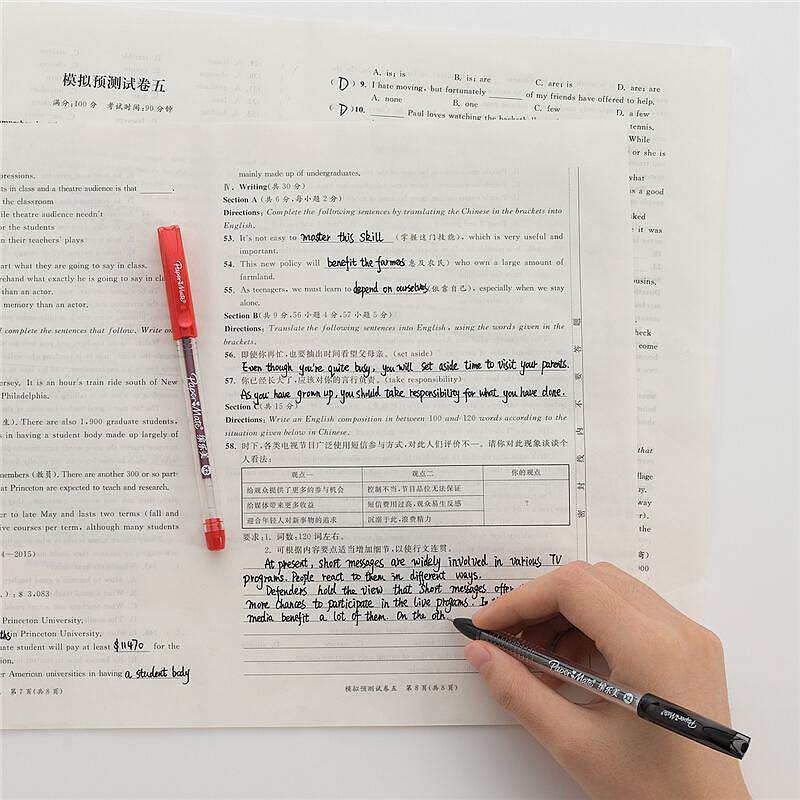 模拟预测试卷五
满分:100分 考试时间:90分钟
A. is; is B. is; are C. are; is D. are; are
(D) 9. I hate moving, but fortunately ______ of my friends have offered to help.
A. none B. one C. few D. a few
(D) 10. ______ Paul loves watching the
tennis.
While
or she is
what
as a good
sked
it was
ousins.
check
come
llage
way
there
高)
900
pressions.
ts in class and a theatre audience is that ______.
the classroom
ile theatre audience needn't
r the students
n their teachers' plays
art what they are going to say in class.
rehand what exactly he is going to say in class
than an actor.
memory than an actor.
d complete the sentences that follow. Write no
ersey. It is an hour's train ride south of New
Philadelphia.
生). There are also 1,900 graduate students,
s in having a student body made up largely of
members (教员). There are another 300 or so part-
at Princeton are expected to teach and research.
er to late May and lasts two terms (fall and
ive courses per term, although many students
4—2015)
): $3,083
Princeton University.
ths in Princeton University.
uate student will pay at least $11470 for the
ion.
er American universities in having a student body
第7页(共8页)
mainly made up of undergraduates.
Ⅳ. Writing(共30分)
Section A (共6分,每小题2分)
Directions: Complete the following sentences by translating the Chinese in the brackets into
English.
53. It's not easy to master this skill (掌握这门技能), which is very useful and
important.
54. This new policy will benefit the farmers(惠及农民) who own a large amount of
farmland.
55. As teenagers, we must learn to depend on ourselves(依靠自己), especially when we stay
alone.
Section B(共9分,56小题4分,57小题5分)
Directions: Translate the following sentences into English, using the words given in the
brackets.
56. 即使你再忙,也要抽出时间看望父母亲。(set aside)
Even though you're quite busy, you will set aside time to visit your parents.
57. 你已经长大了,应该对你的言行负责。(take responsibility)
As you have grown up, you should take responsibility for what you have done.
Section C(共15分)
Directions: Write an English composition in between 100 and 120 words according to the
situation given below in Chinese.
58. 时下,各类电视节目广泛使用短信参与方式,对此人们评价不一。请你对此现象谈谈个
人看法:
观点一 观点二 你的观点
给观众提供了更多的参与机会 控制不当,节目品位无法保证
给媒体带来更多收益 短信费用过高,观众易生反感 ?
迎合年轻人对新事物的追求 沉溺于此,浪费精力
要求:1. 词数:120词左右。
2. 可根据内容要点适当增加细节,以使行文连贯。
At present, short messages are widely involved in various TV
programs. People react to them in different ways.
Defenders hold the view that short messages offer
more chances to participate in the live progams. In
media benefit a lot of them. On the oth
模拟预测试卷五 第8页(共8页)
密 封 线 内 不 要 答 题
Paper Mate
Paper Mate
Paper Mate
Paper Mate